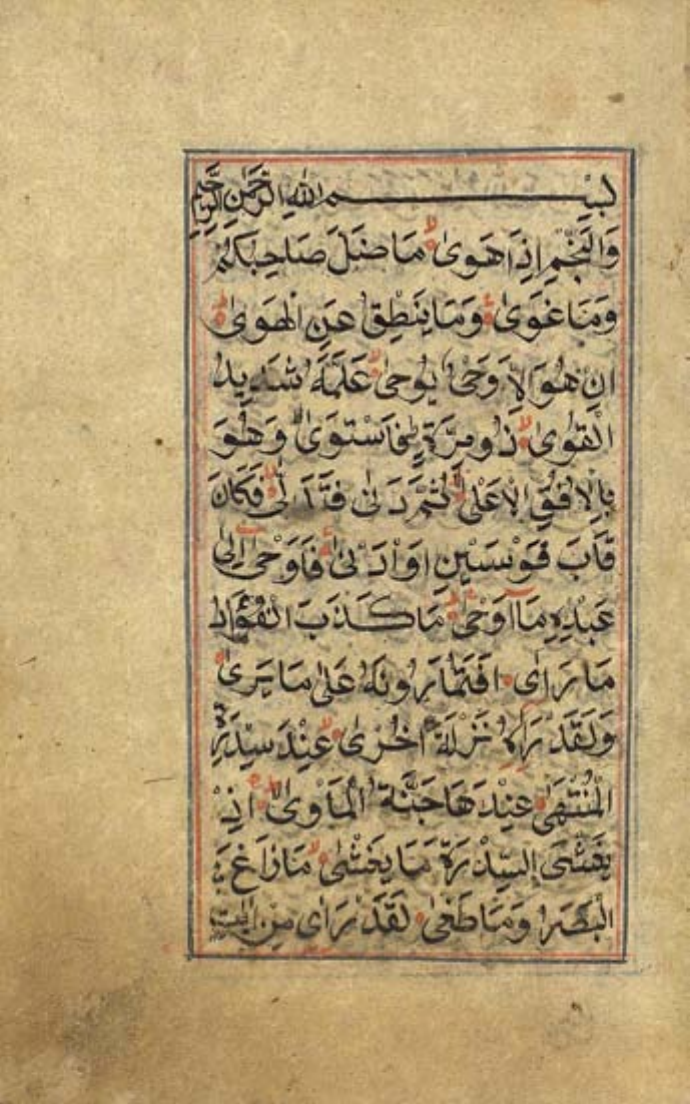 بسم الله الرحمن الرحيم
وَالنَّجْمِ إِذَا هَوَىٰ مَا ضَلَّ صَاحِبُكُمْ
وَمَا غَوَىٰ وَمَا يَنْطِقُ عَنِ الْهَوَىٰ
اِنْ هُوَ اِلَّا وَحْيٌ يُوحَىٰ عَلَّمَهُ شَدِيدُ
الْقُوَىٰ ذُو مِرَّةٍ فَاسْتَوَىٰ وَهُوَ
بِالْاُفُقِ الْاَعْلَىٰ ثُمَّ دَنَىٰ فَتَدَلَّىٰ فَكَانَ
قَابَ قَوْسَيْنِ اَوْ اَدْنَىٰ فَاَوْحَىٰ اِلَىٰ
عَبْدِهِ مَا اَوْحَىٰ مَا كَذَبَ الْفُؤَادُ
مَا رَاَى اَفَتُمَارُونَهُ عَلَىٰ مَا يَرَىٰ
وَلَقَدْ رَاٰهُ نَزْلَةً اُخْرَىٰ عِنْدَ سِدْرَةِ
الْمُنْتَهَىٰ عِنْدَهَا جَنَّةُ الْمَأْوَىٰ اِذْ
يَغْشَى السِّدْرَةَ مَا يَغْشَىٰ مَا زَاغَ
الْبَصَرُ وَمَا طَغَىٰ لَقَدْ رَاَى مِنْ